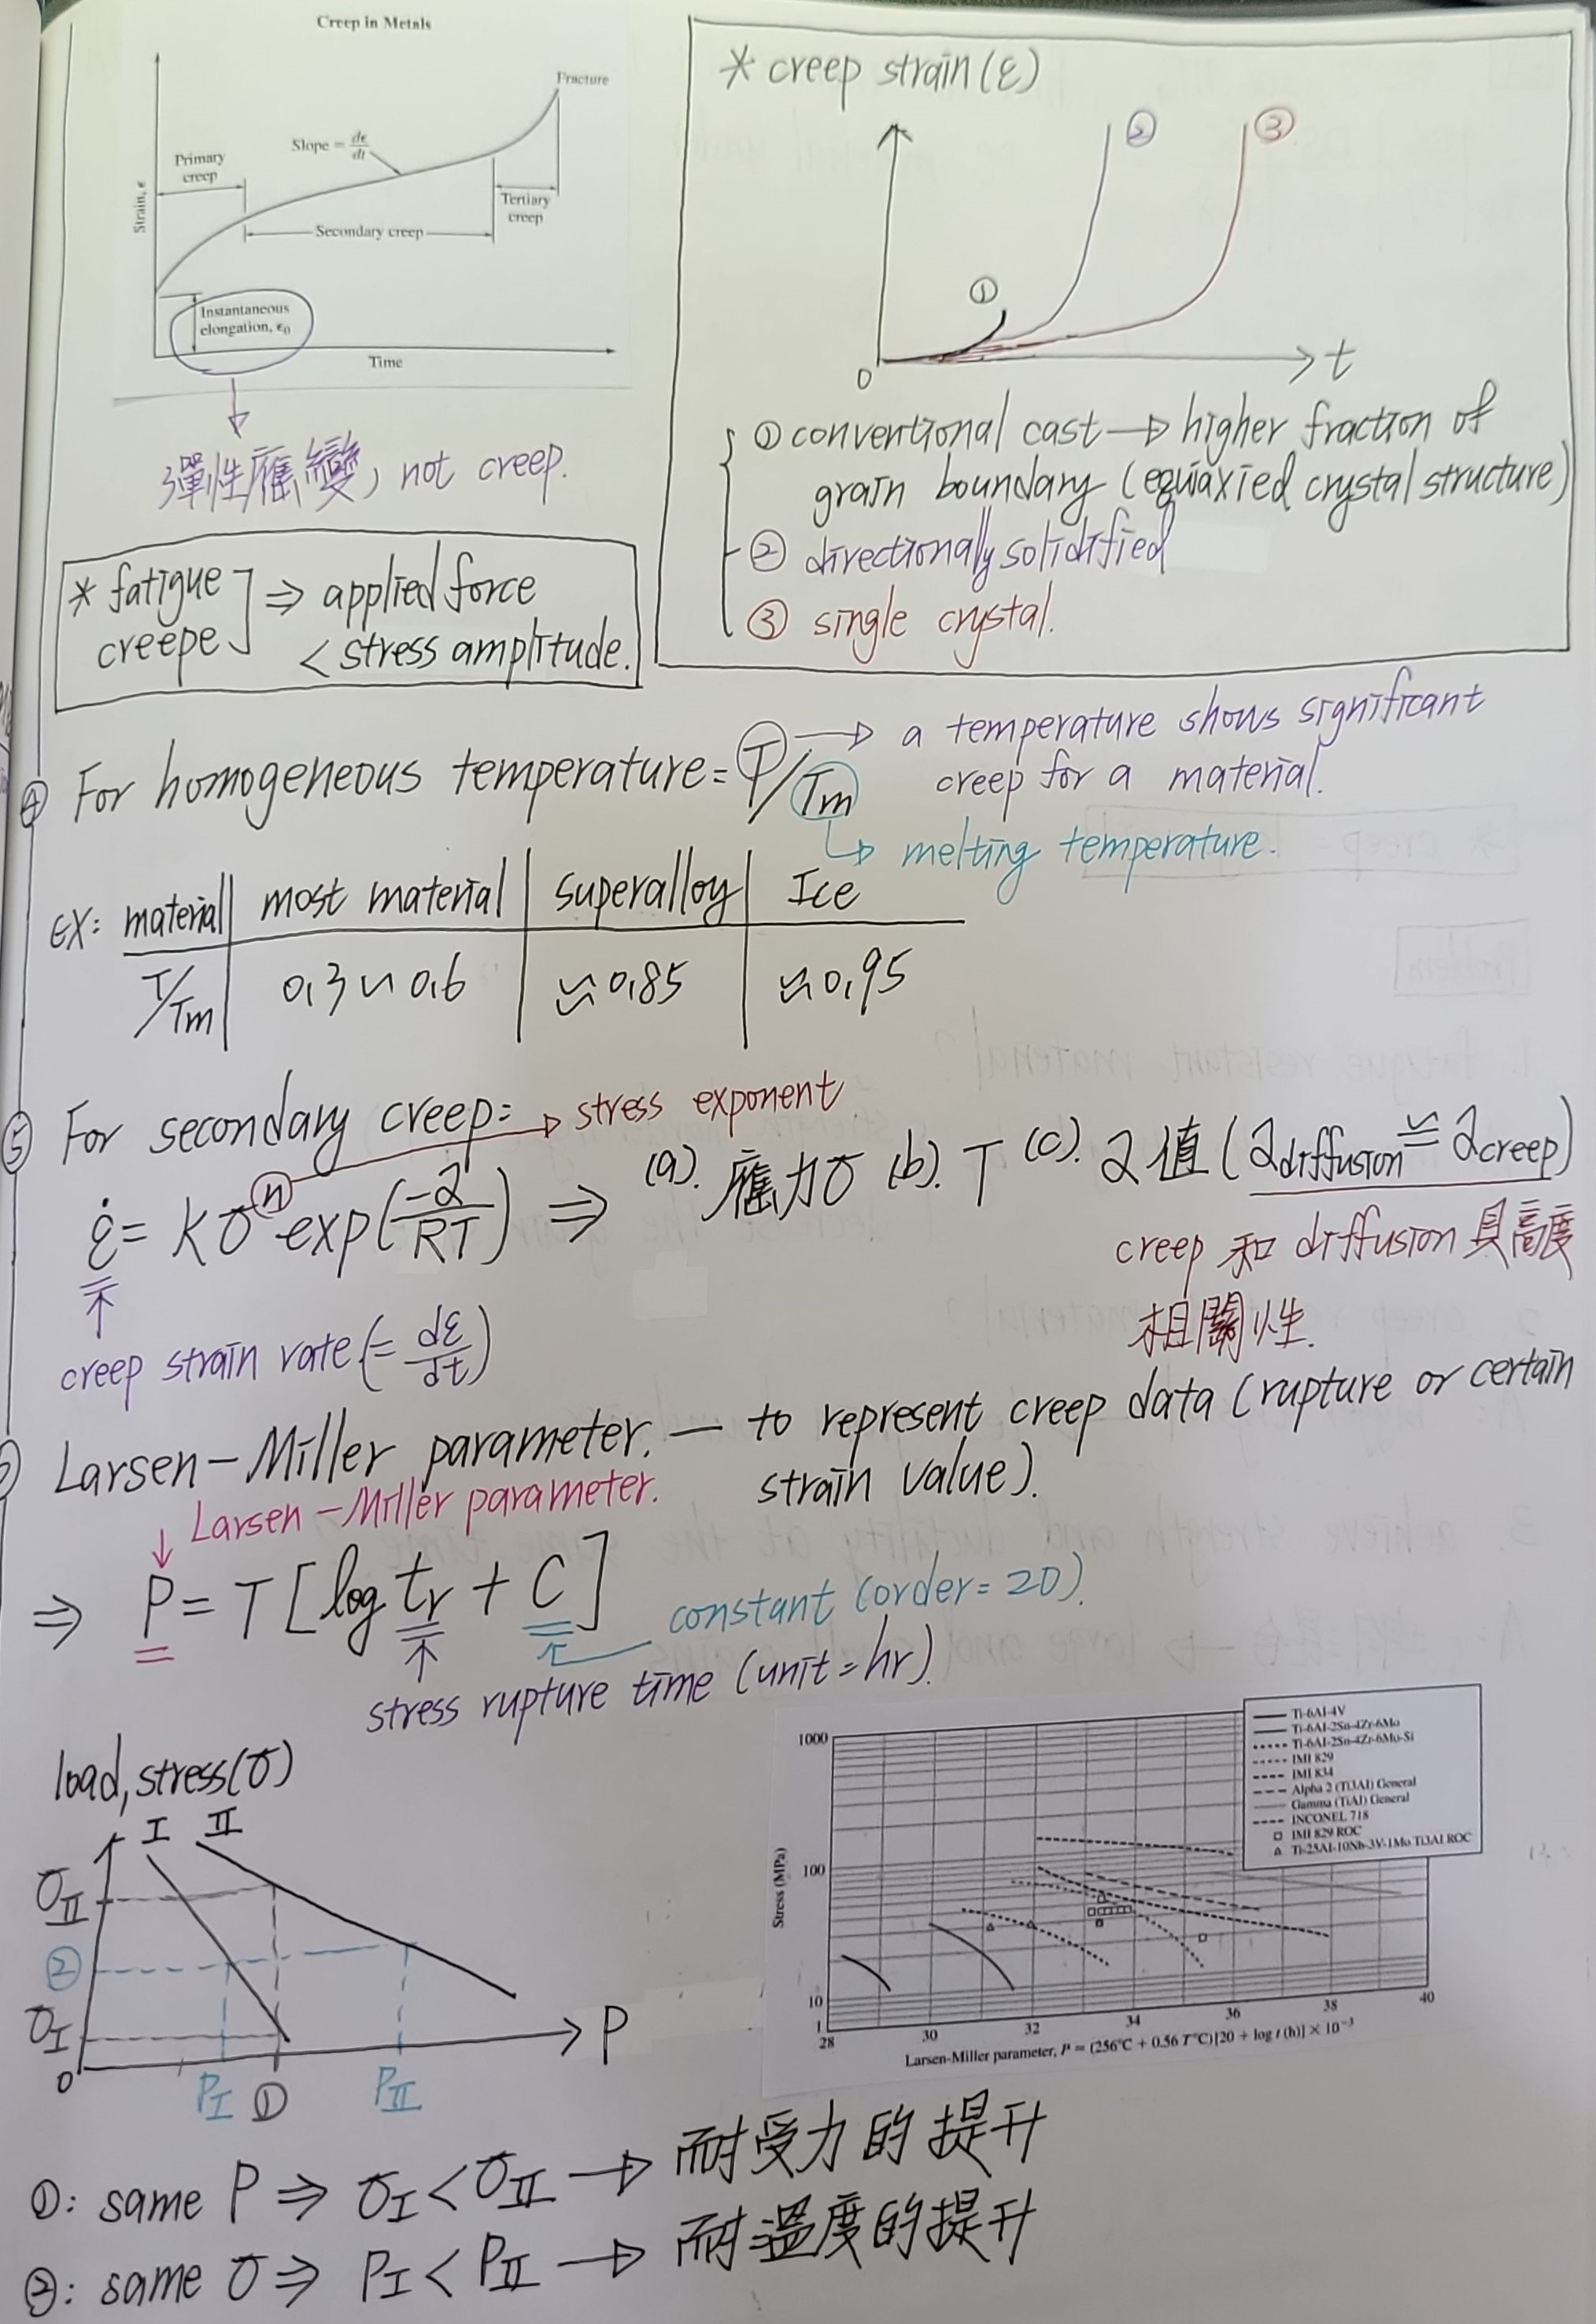 Creep in Metals
Fracture
Slope = dε/dt
Primary
creep
Strain, ε
Tertiary
creep
Secondary creep
Instantaneous
elongation, ε₀
Time
彈性應變, not creep.
* creep strain (ε)
① ② ③
0 t
① conventional cast → higher fraction of
grain boundary (equiaxied crystal structure)
② directionally solidified
③ single crystal.
* fatigue
creepe ⇒ applied force
< stress amplitude.
④ For homogeneous temperature = T/Tm → a temperature shows significant
creep for a material.
↳ melting temperature.
EX: material | most material | superalloy | Ice
T/Tm | 0.3 ~ 0.6 | ≈ 0.85 | ≈ 0.95
⑤ For secondary creep: → stress exponent
ε̇ = Kσⁿ exp(-Q/RT) ⇒ (a). 應力σ (b). T (c). Q值 (Qdiffusion ≅ Qcreep)
creep 和 diffusion 具高度
相關性.
creep strain rate (= dε/dt)
Larsen-Miller parameter. — to represent creep data (rupture or certain
strain value).
↓ Larsen-Miller parameter.
⇒ P = T [log tr + C]
constant (order = 20).
stress rupture time (unit = hr).
load, stress(σ)
I II
σII
②
σI
0 PI ① PII P
Ti-6Al-4V
Ti-6Al-2Sn-4Zr-6Mo
Ti-6Al-2Sn-4Zr-6Mo-Si
IMI 829
IMI 834
Alpha 2 (Ti3Al) General
Gamma (TiAl) General
INCONEL 718
IMI 829 ROC
Ti-25Al-10Nb-3V-1Mo Ti3Al ROC
1000
100
10
1
Stress (MPa)
28 30 32 34 36 38 40
Larsen-Miller parameter, P = (256°C + 0.56 T°C)[20 + log t (h)] × 10⁻³
①: same P ⇒ σI < σII → 耐受力的提升
②: same σ ⇒ PI < PII → 耐溫度的提升